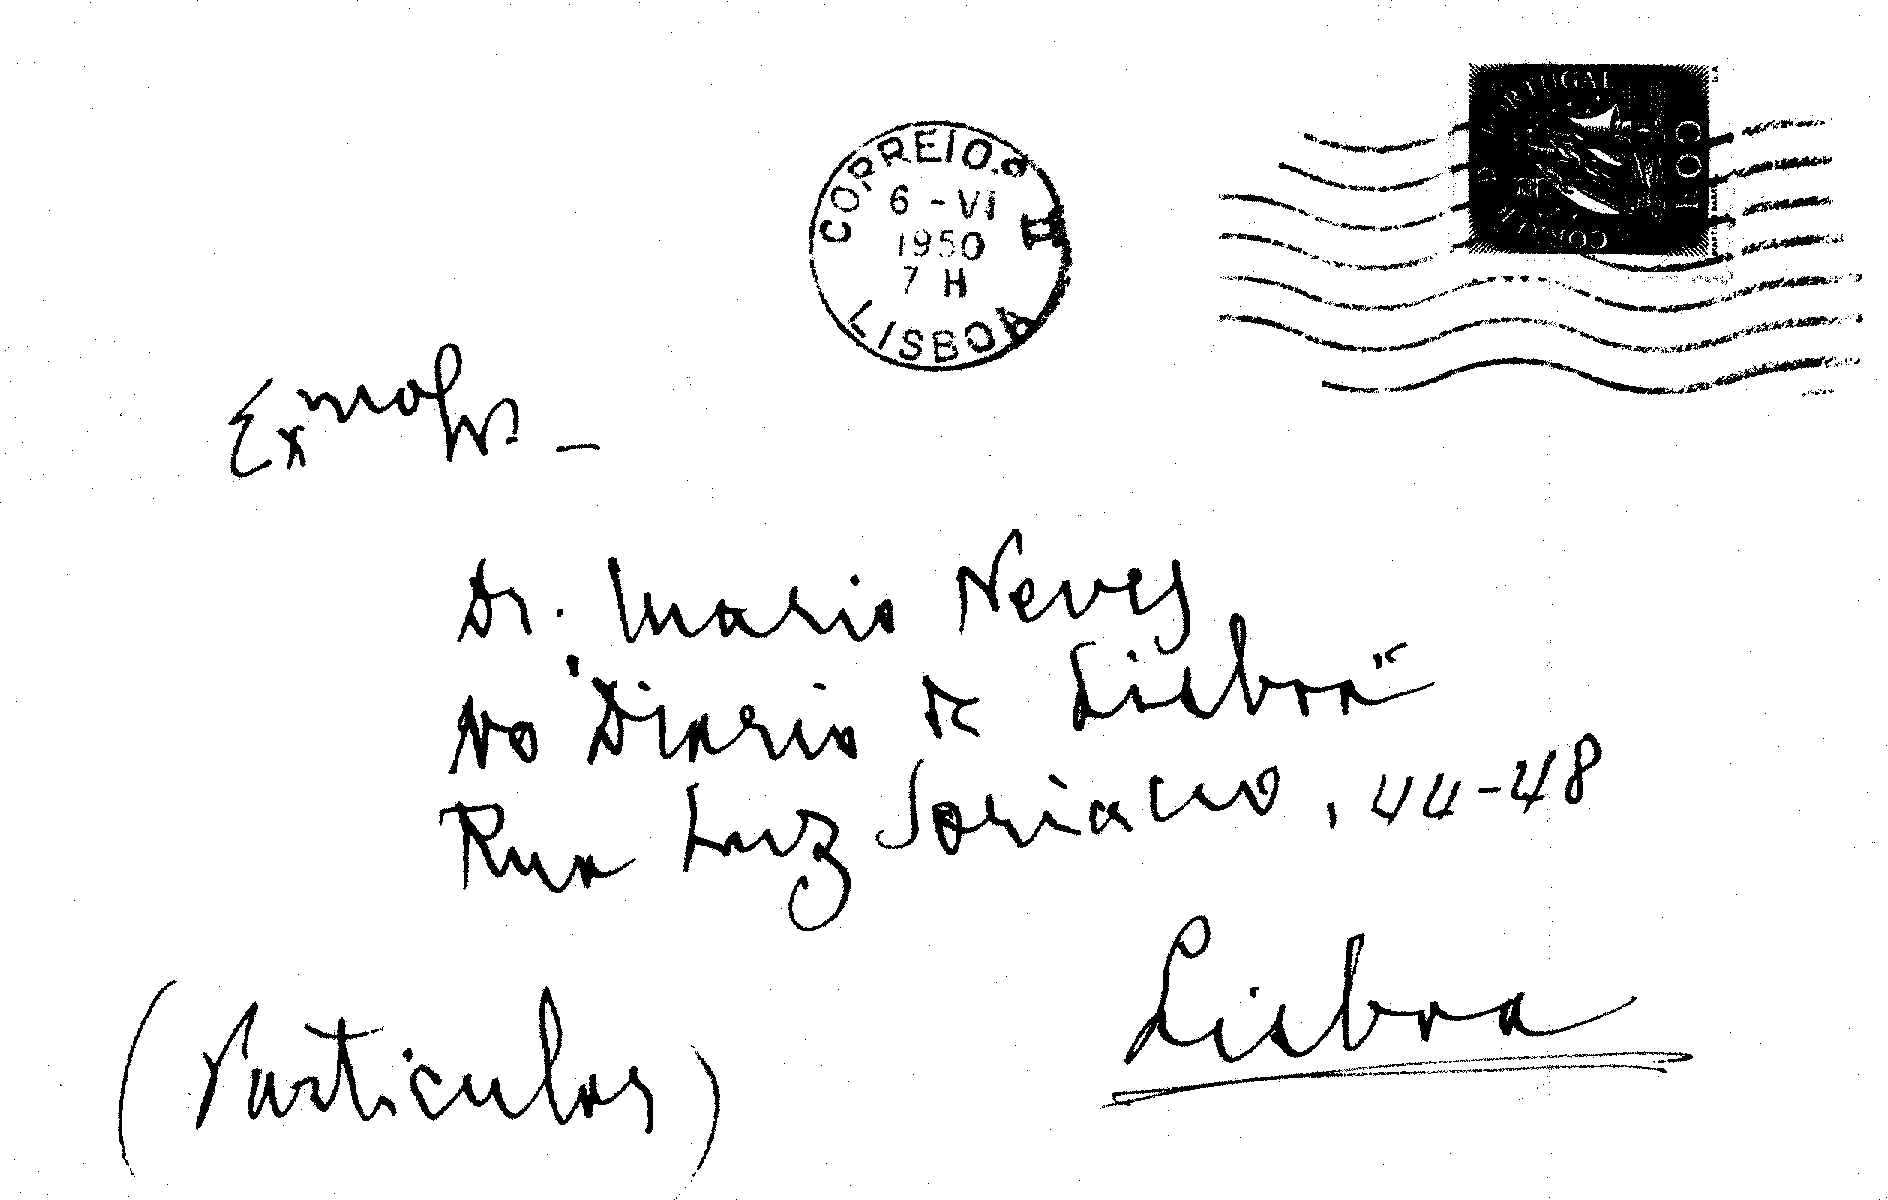 CORREIOS
6 - VI
1950
7 H
LISBOA
PORTUGAL
Exmo Sr. —
Dr. Mario Neves
no "Diario de Lisboa"
Rua Luz Soriano, 44-48
Lisboa
(Particular)